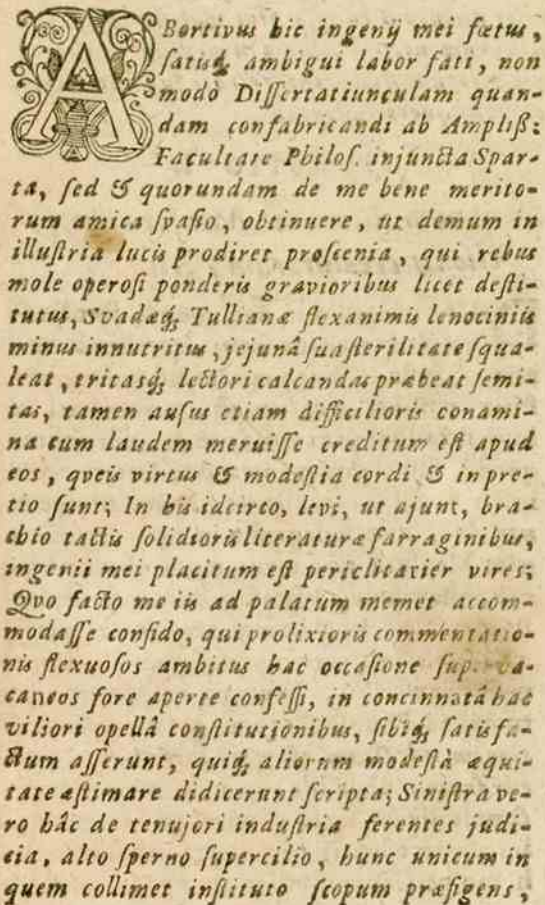 ABortivus hic ingenij mei fœtus,
satisq; ambigui labor fati, non
modò Dissertatiunculam quan-
dam confabricandi ab Ampliß:
Facultate Philos. injuncta Spar-
ta, sed & quorundam de me bene merito-
rum amica svasio, obtinuere, ut demum in
illustria lucis prodiret proscenia, qui rebus
mole operosi ponderis gravioribus licet desti-
tutus, Svadæq; Tullianæ flexanimis lenociniis
minus innutritus, jejunâ sua sterilitate squa-
leat, tritasq; lectori calcandas præbeat semi-
tas, tamen ausus etiam difficilioris conami-
na cum laudem meruisse creditum est apud
eos, qveis virtus & modestia cordi & in pre-
tio sunt; In his idcirco, levi, ut ajunt, bra-
chio tactis solidioris literaturæ farraginibus,
ingenii mei placitum est periclitarier vires;
Qvo facto me iis ad palatum memet accom-
modasse confido, qui prolixioris commentatio-
nis flexuosos ambitus hac occasione superva-
caneos fore aperte confessi, in concinnatâ hac
viliori opellâ constitutionibus, sibiq; satisfa-
ctum asserunt, quiq; aliorum modestà æqui-
tate æstimare didicerunt scripta; Sinistra ve-
ro hâc de tenujori industria ferentes judi-
cia, alto sperno supercilio, hunc unicum in
quem collimet instituto scopum præfigens,